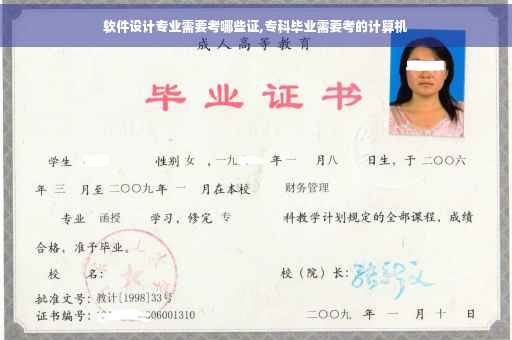 软件设计专业需要考哪些证,专科毕业需要考的计算机
成人高等教育
毕业证书
学生 性别 女 ,一九 年一 月八 日生,于二〇〇六
年 三 月至二〇〇九年 一 月在本校 财务管理
专业 函授 学习,修完 专 科教学计划规定的全部课程,成绩
合格,准予毕业。
校 名: 校(院)长:
批准文号:教计[1998]33号
证书编号: 06001310 二〇〇九 年 一 月 十 日